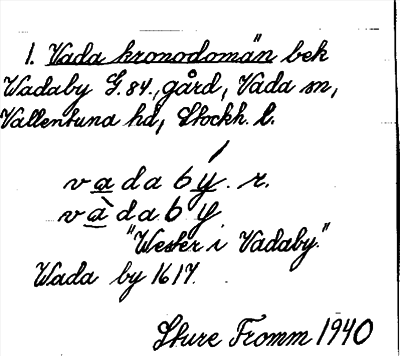 1. Vada kronodomän bek
Wadaby G. 84., gård, Vada sn,
Vallentuna hd, Stockh. l.
vadaby. r.
vàdaby
"Wester i Vadaby."
Wada by 1617.
Sture Fromm 1940